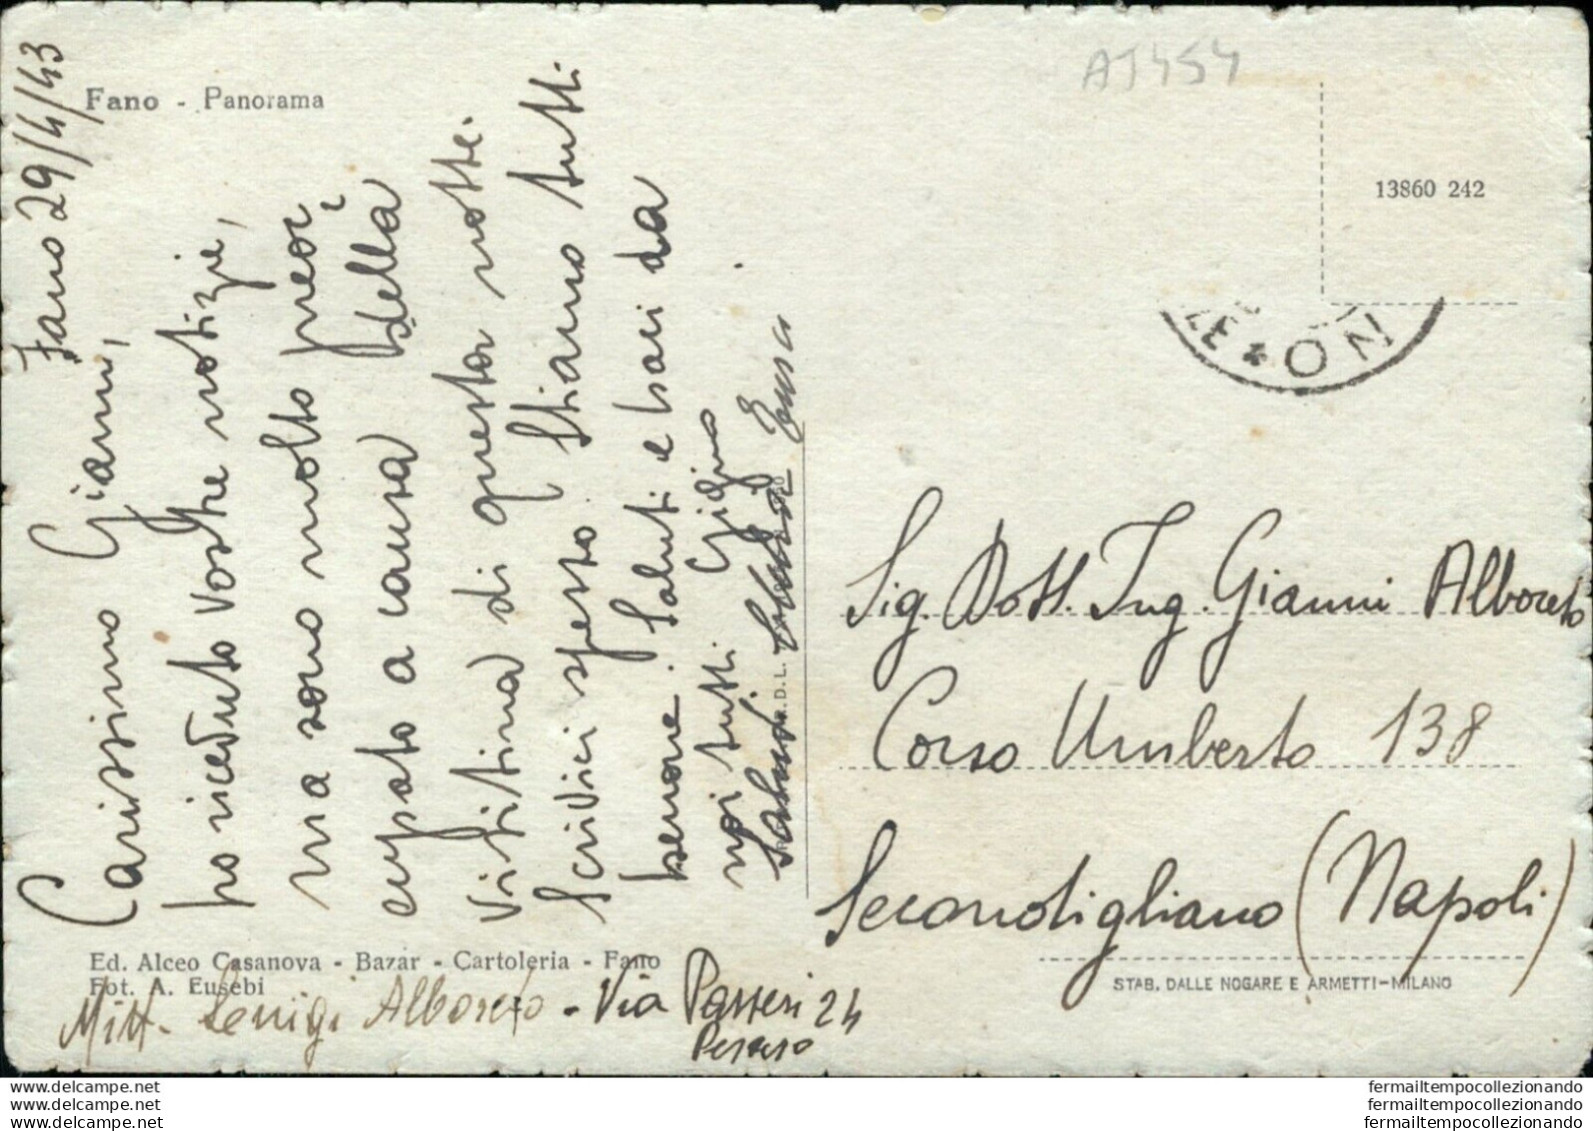 Fano - Panorama
Fano 29/4/43
Carissimo Gianni,
ho riceduto vostre notizie,
ma sono molto preoc
cupato a causa della
vittima di questa notte.
Scrivici spesso. Stiamo tutti
benone. Saluti e baci da
noi tutti Gigino
Saluti
A5454
13860 242
NO
Sig. Dott. Ing. Gianni Alboreto
Corso Umberto 138
Secondigliano (Napoli)
STAB. DALLE NOGARE E ARMETTI-MILANO
Ed. Alceo Casanova - Bazar - Cartoleria - Fano
Fot. A. Eusebi
Mitt. Luigi Alboreto - Via Passeri 24
Pesaro
www.delcampe.net
www.delcampe.net
www.delcampe.net
fermailtempocollezionando
fermailtempocollezionando
fermailtempocollezionando